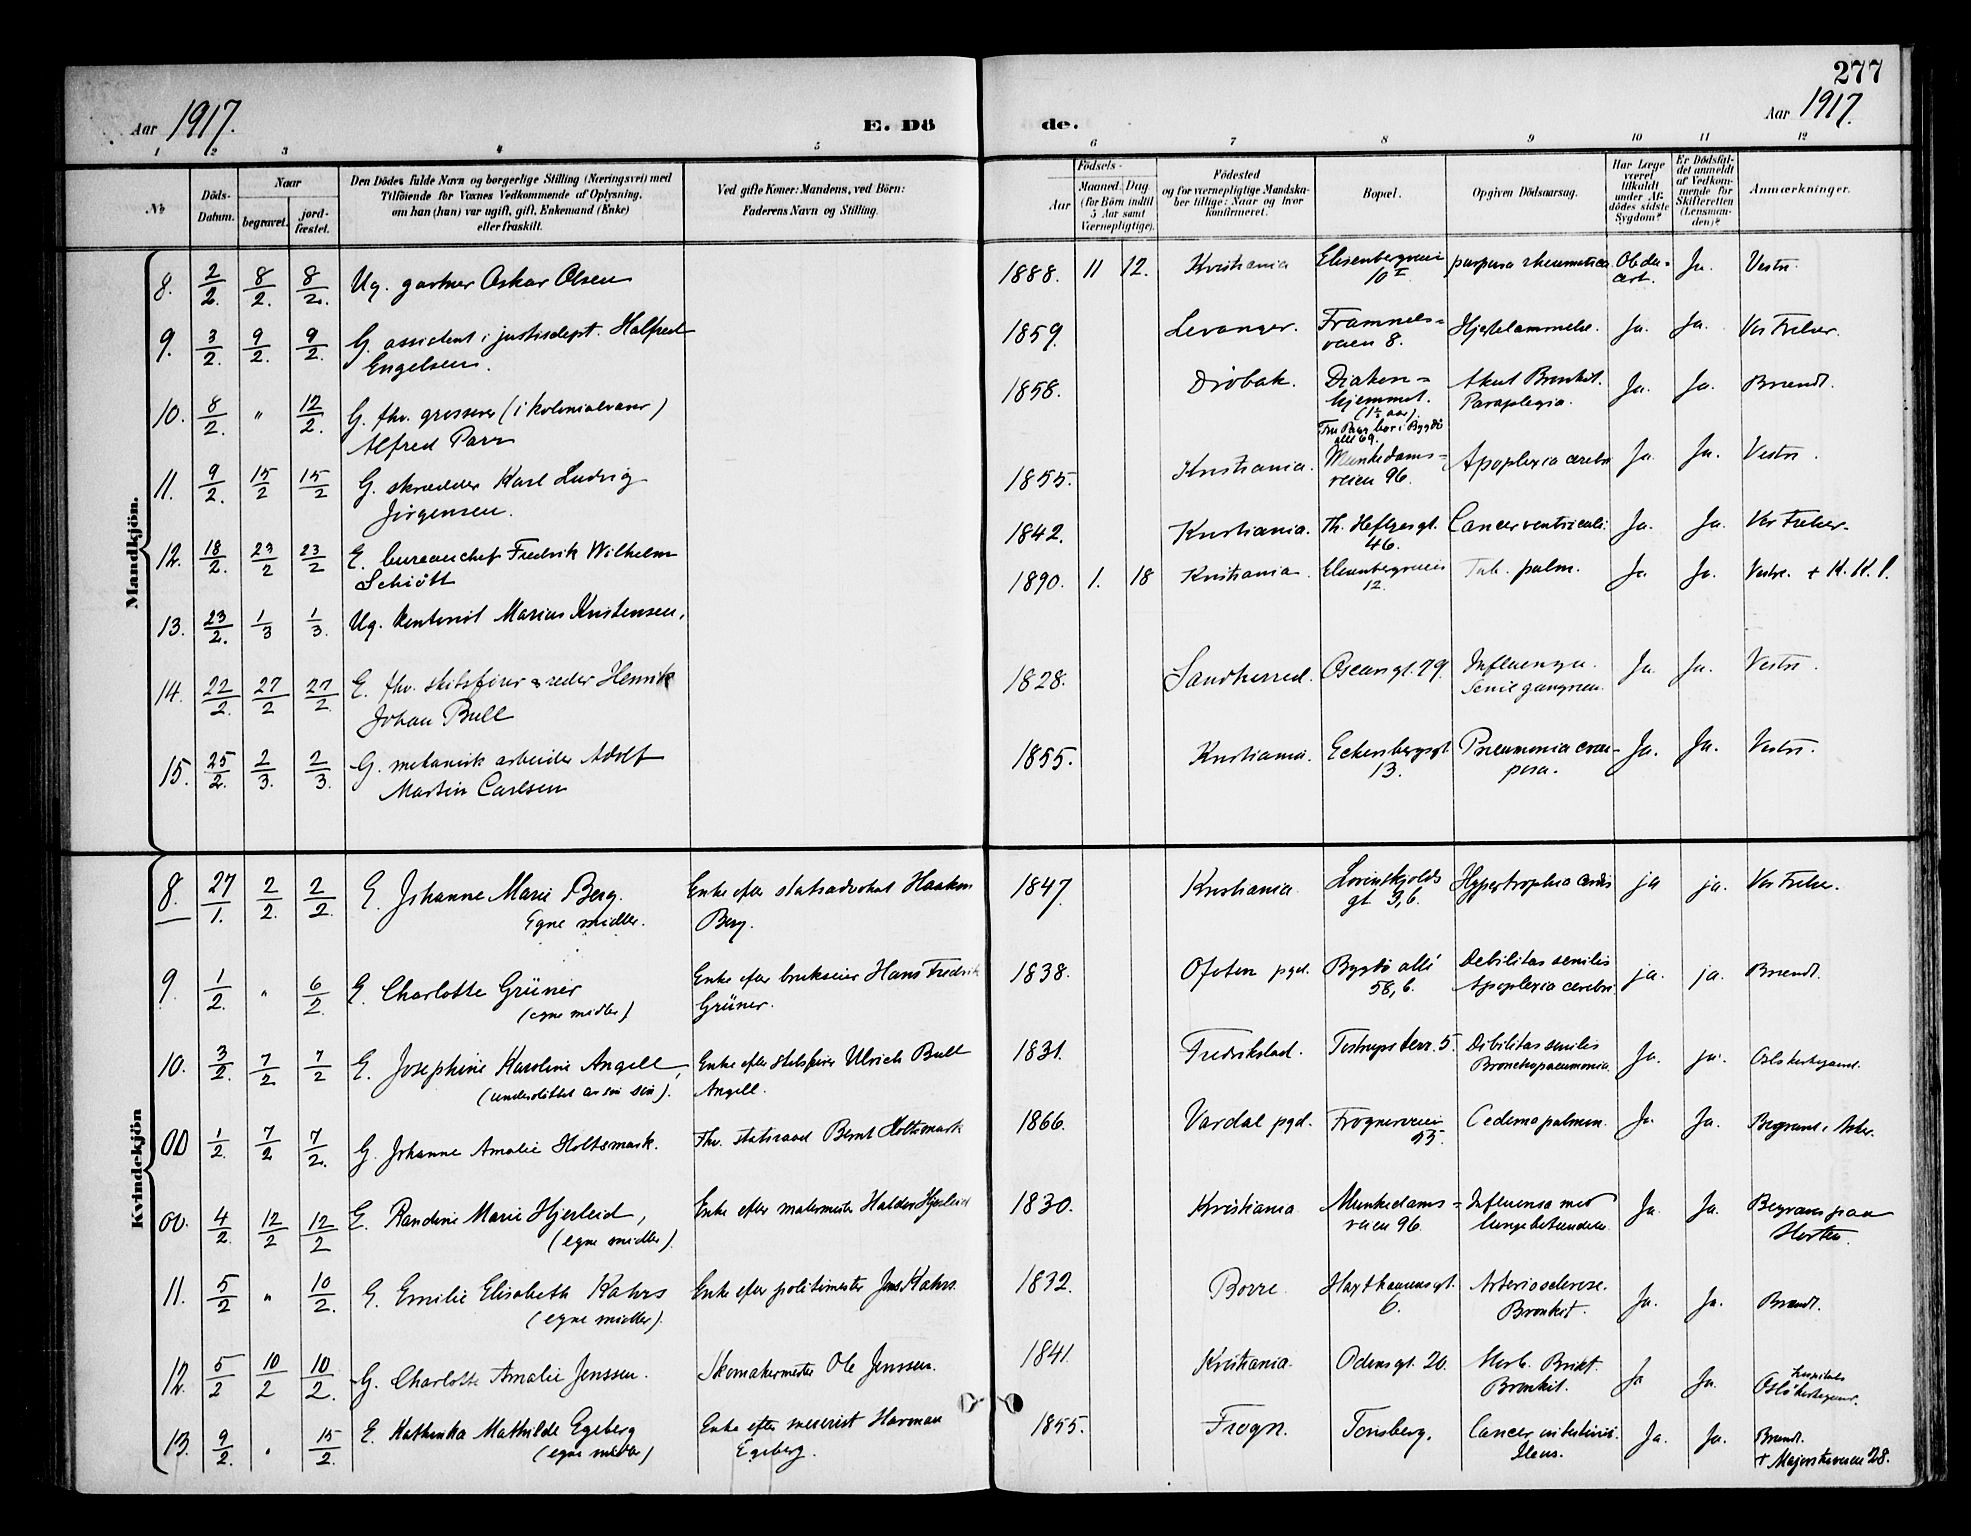 277
Aar 1917.
E. Döde.
Aar 1917.
1 2 3 4 5 6 7 8 9 10 11 12
No
Döds-Datum.
Naar
begravet.
jord-fæstet.
Den Dödes fulde Navn og borgerlige Stilling (Næringsvei) med
Tilföiende for Voxnes Vedkommende af Oplysning,
om han (hun) var ugift, gift, Enkemand (Enke)
eller fraskilt.
Ved gifte Koner: Mandens, ved Börn:
Faderens Navn og Stilling.
Födsels-
Aar
Maaned. Dag
(for Börn indtil
5 Aar samt
Værnepligtige).
Födested
og for værnepligtige Mandska-
ber tillige: Naar og hvor
konfirmeret.
Bopæl.
Opgiven Dödsaarsag.
Har Læge
været
tilkaldt
under Af-
dödes sidste
Sygdom?
Er Dödsfal-
det anmeldt
af Vedkom-
mende for
Skifteretten
(Lensman-
den)?
Anmærkninger.
Mandkjön.
8. 2/2. 8/2. 8/2. Ug. gartner Oskar Olsen 1888. 11 12. Kristiania Elisenbergveien 10 I purpura rheumatica Ja. Vestre.
9. 3/2. 9/2. 9/2. G. assistent i justisdept. Halfred
Engelsen. 1859. Levanger. Framnes-
veien 8. Hjertelammelse. Ja. Ja. Vor Frelser.
10. 8/2. " 12/2. G. fhv. grosserer (i kolonialvarer)
Alfred Parr 1858. Drøbak. Diakon-
hjemmet.
(1½ aar).
Fru Parr bor i Bygdø
allé 69. Akut Bronkit.
Paraplegia. Ja. Ja. Brændt.
11. 9/2. 15/2 15/2 G. skrædder Karl Ludvig
Jørgensen. 1855. Kristiania. Munkedams-
veien 96. Apoplexia cerebri Ja Ja. Vestre
12. 18/2. 23/2 23/2 E. bureauchef Fredrik Wilhelm
Schiøtt 1842. Kristiania. Th. Heftyesgt.
46. Cancer ventriculi. Ja. Ja. Vor Frelser.
13. 23/2. 1/3 1/3. Ug. kontorist Marius Kristensen. 1890. 1. 18 Kristiania. Elisenbergveien
12. Tub. pulm. Ja Ja. Vestre. + K. K. l.
14. 22/2. 27/2 27/2 E. fhv. skibsfører & reder Henrik
Johan Bull 1828. Sandherred. Oscarsgt. 79. Influenza.
Senil gangræn. Ja Ja. Vestre
15. 25/2. 2/3. 2/3. G. mekanisk arbeider Adolf
Martin Carlsen 1855. Kristiania. Eckersbergsgt.
13. Pneumonia crou-
posa. Ja. Ja. Vestre.
Kvindekjön
8. 27/1. 2/2. 2/2. E. Johanne Marie Berg.
Egne midler. Enke efter statsadvokat Haakon
Berg. 1847. Kristiania Løvenskjolds
gt 3, b. Hypertrophia cordis ja ja. Vor Frelser.
9. 1/2. " 6/2. E. Charlotte Grüner
(egne midler) Enke efter brukseier Hans Fredrik
Grüner. 1838. Ofoten pgd. Bygdø allé
58, b. Debilitas senilis
Apoplexia cerebri. ja. ja. Brændt.
10. 3/2. 7/2 7/2 E. Josephine Karoline Angell,
(understøttet av sin søn). Enke efter skibsfører Ulrich Bull
Angell. 1831. Fredrikstad. Tostrups terr. 5. Debilitas senilis
Bronchopneumonia. Ja. ja.
00 1/2. 7/2 7/2. G. Johanne Amalie Holtsmark. Fhv. statsraad Bernt Holtsmark 1866. Vardal pgd. Frognerveien
53. Oedema pulmon. Ja. Ja. Begravet i Asker.
00. 4/2. 12/2 12/2 E. Randine Marie Hjerleid,
(egne midler). Enke efter malermester Haldor Hjerleid 1830. Kristiania Munkedams-
veien 96. Influensa med
lungebetændelse. Ja. Ja. Begraves paa
Horten.
11. 5/2 " 10/2. E. Emilie Elisabeth Kahrs
(egne midler). Enke efter politimester Jens Kahrs. 1832. Borre. Haxthausensgt.
6. Arteriosclerose.
Bronkit. Ja. Ja. Brændt.
12. 5/2 10/2 10/2. G. Charlotte Amalie Jenssen. Skomakermester Ole Jenssen. 1841. Kristiania. Odinsgt. 20. Morb. Brikt.
Bronkit. Ja Ja. Oslo hospitals
13. 9/2. " 15/2. E. Kathinka Mathilde Egeberg
(egne midler) Enke efter meierist Herman
Egeberg. 1855. Frogn. Tønsberg. Cancer intestinis.
Ileus. Ja. Ja. Brændt.
+ Majorstuveien 28.